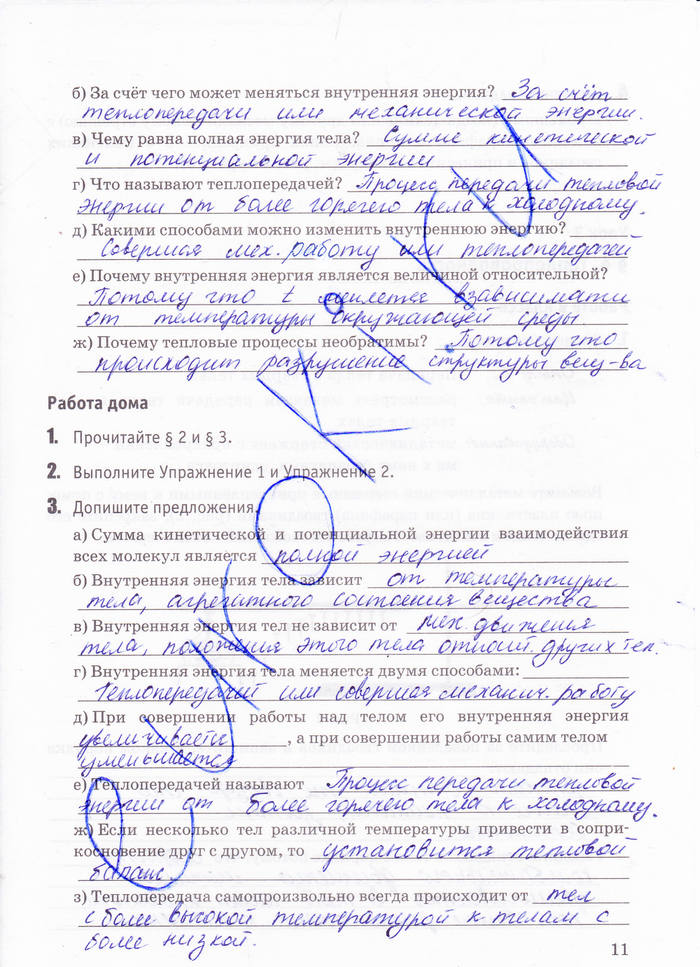 б) За счёт чего может меняться внутренняя энергия? За счёт
теплопередачи или механической энергии.
в) Чему равна полная энергия тела? Сумме кинетической
и потенциальной энергии
г) Что называют теплопередачей? Процесс передачи тепловой
энергии от более горячего тела к холодному.
д) Какими способами можно изменить внутреннюю энергию?
Совершая мех. работу или теплопередачей
е) Почему внутренняя энергия является величиной относительной?
Потому что t меняется взависимати
от температуры окружающей среды.
ж) Почему тепловые процессы необратимы? Потому что
происходит разрушение структуры вещ-ва
Работа дома
1. Прочитайте § 2 и § 3.
2. Выполните Упражнение 1 и Упражнение 2.
3. Допишите предложения.
а) Сумма кинетической и потенциальной энергии взаимодействия
всех молекул является полной энергией
б) Внутренняя энергия тела зависит от температуры
тела, агрегатного состояния вещества
в) Внутренняя энергия тел не зависит от мех. движения
тела, положения этого тела относит. других тел.
г) Внутренняя энергия тела меняется двумя способами:
Теплопередачий или совершая механич. работу
д) При совершении работы над телом его внутренняя энергия
увеличивается, а при совершении работы самим телом
уменьшается
е) Теплопередачей называют Процесс передачи тепловой
энергии от более горячего тела к холодному.
ж) Если несколько тел различной температуры привести в сопри-
косновение друг с другом, то установится тепловой
баланс.
з) Теплопередача самопроизвольно всегда происходит от тел
с более высокой температурой к телам с
более низкой.
11